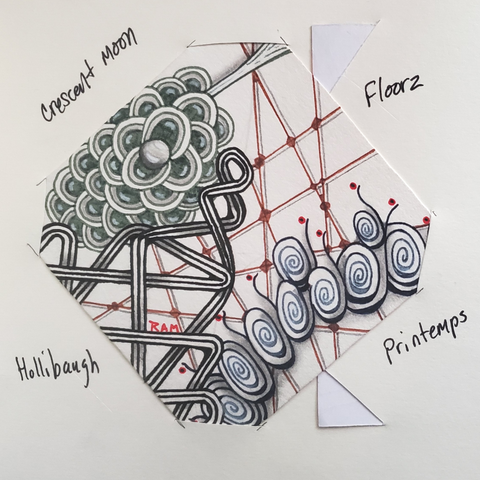 Crescent Moon
Floorz
RAM
Hollibaugh
Printemps